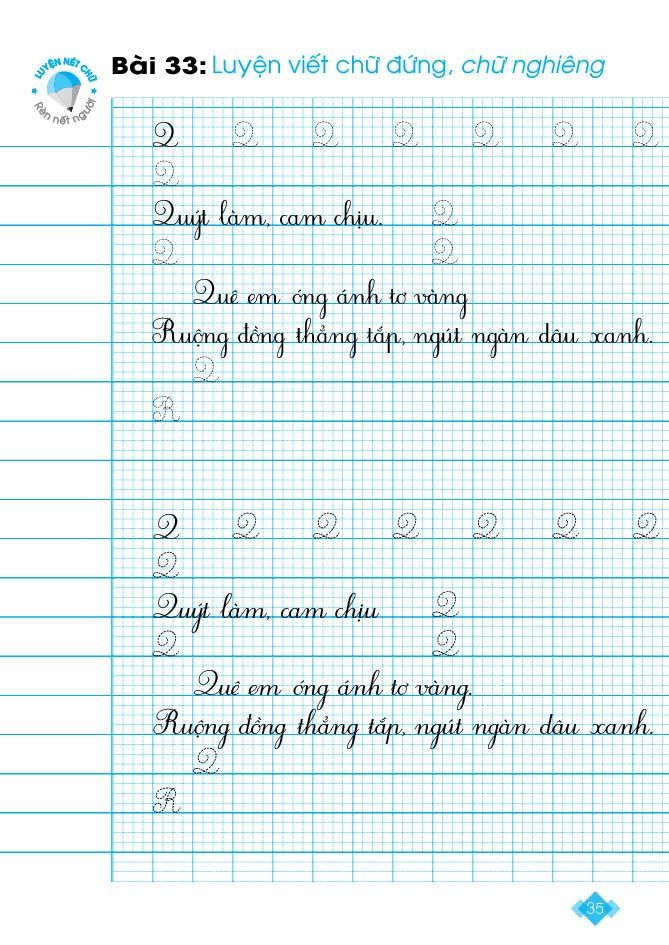 LUYỆN NÉT CHỮ
Rèn nết người
Bài 33: Luyện viết chữ đứng, chữ nghiêng
Q Q Q Q Q Q Q
Q
Quýt làm, cam chịu. Q
Q Q
Quê em óng ánh tơ vàng
Ruộng đồng thẳng tắp, ngút ngàn dâu xanh.
Q
R
Q Q Q Q Q Q Q
Q
Quýt làm, cam chịu Q
Q Q
Quê em óng ánh tơ vàng.
Ruộng đồng thẳng tắp, ngút ngàn dâu xanh.
Q
R
35